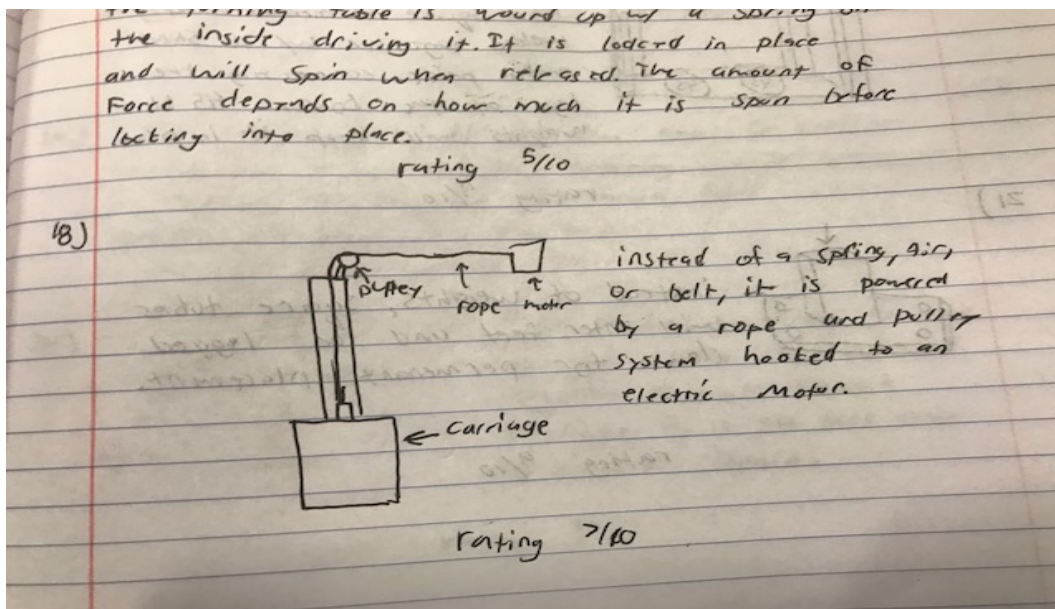 the turning table is wound up w/ a spring on
the inside driving it. It is locked in place
and will spin when released. The amount of
Force depends on how much it is spun before
locking into place.
rating 5/10
18)
pulley
rope
motor
instead of a spring, air,
or belt, it is powered
by a rope and pulley
system hooked to an
electric motor.
← carriage
rating 7/10